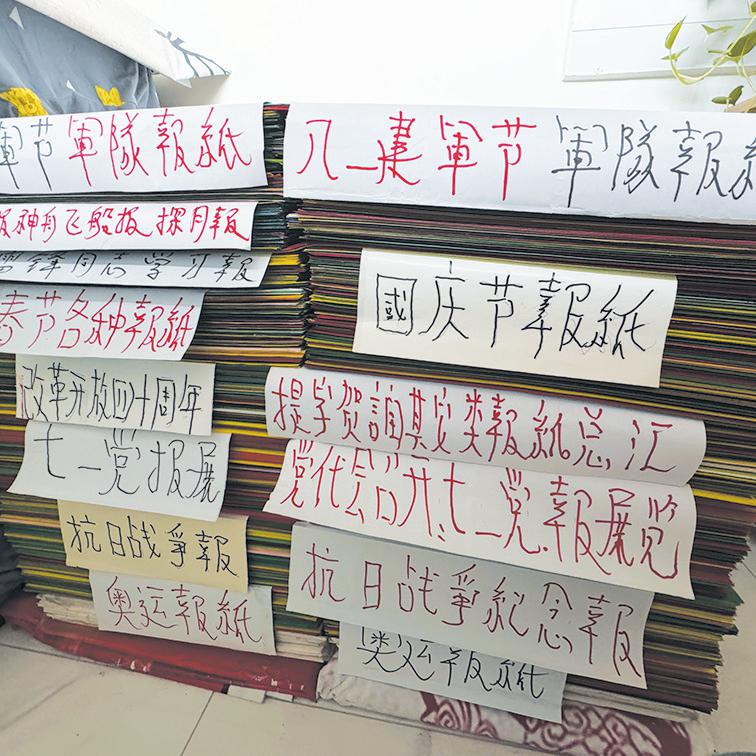 軍节軍隊報紙
神舟飞船报 探月報
锋同志学习報
春节各种報紙
改革开放四十周年
七一党报展
抗日战爭報
奥运報紙
八一建軍节 軍隊報紙
國庆节報紙
提字贺詞其它类報紙总汇
党代会召开、七一党.報展览
抗日战爭紀念報
奥运報紙